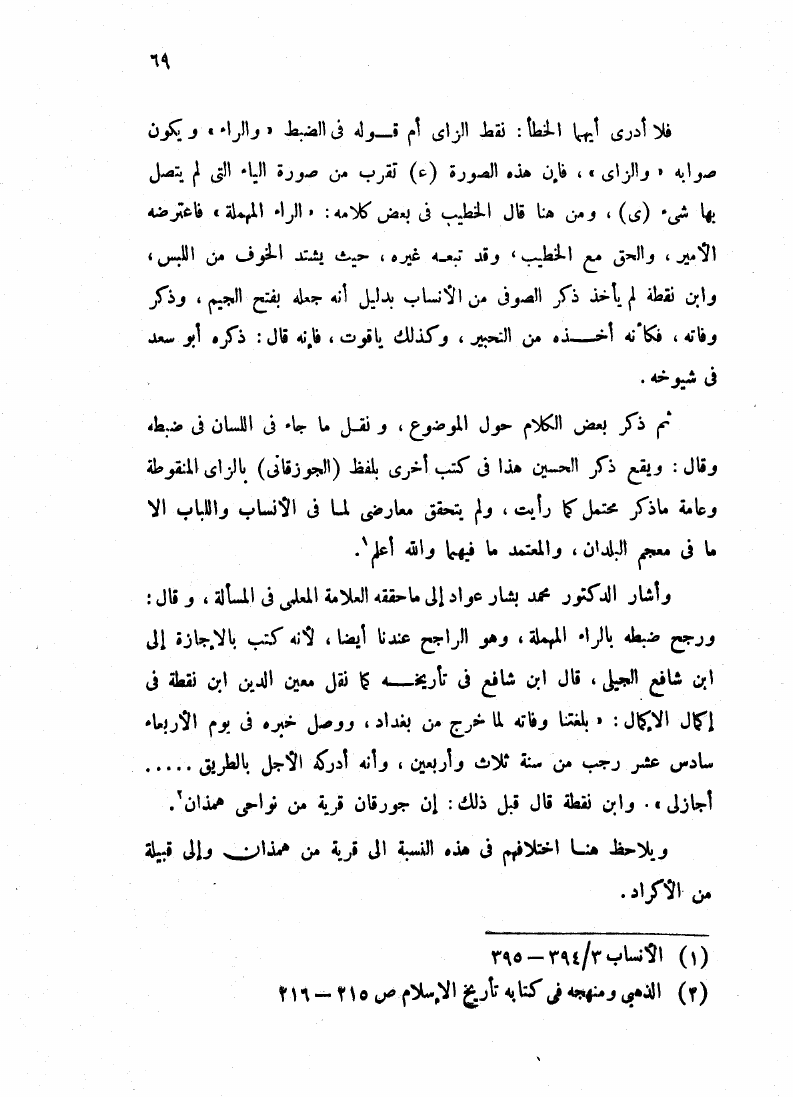 ٦٩
فلا أدرى أيهما الخطأ : نقط الزاى أم قوله فى الضبط « والراء » و يكون
صوابه « والزاى » ، فإن هذه الصورة (ء) تقرب من صورة الياء التى لم يتصل
بها شىء (ى) ، ومن هنا قال الخطيب فى بعض كلامه : « الراء المهملة » فاعترضه
الأمير ، والحق مع الخطيب ، وقد تبعه غيره ، حيث يشتد الخوف من اللبس ،
وابن نقطة لم يأخذ ذكر الصوفى من الأنساب بدليل أنه جعله بفتح الجيم ، وذكر
وفاته ، فكأنه أخذه من التحبير ، وكذلك ياقوت ، فإنه قال : ذكره أبو سعد
فى شيوخه .
ثم ذكر بعض الكلام حول الموضوع ، و نقل ما جاء فى اللسان فى ضبطه
وقال : ويقع ذكر الحسين هذا فى كتب أخرى بلفظ (الجوزقانى) بالزاى المنقوطة
وعامة ماذكر محتمل كما رأيت ، ولم يتحقق معارض لما فى الأنساب واللباب الا
ما فى معجم البلدان ، والمعتمد ما فيهما والله أعلم١.
وأشار الدكتور محمد بشار عواد إلى ماحققه العلامة المعلمى فى المسألة ، و قال :
ورجح ضبطه بالراء المهملة ، وهو الراجح عندنا أيضا ، لأنه كتب بالإجازة إلى
ابن شافع الجيلى ، قال ابن شافع فى تأريخه كما نقل معين الدين ابن نقطة فى
إكمال الاكمال : « بلغتنا وفاته لما خرج من بغداد ، ووصل خبره فى يوم الأربعاء
سادس عشر رجب من سنة ثلاث وأربعين ، وأنه أدركه الأجل بالطريق .....
أجازلى » . وابن نقطة قال قبل ذلك : إن جورقان قرية من نواحى همذان٢.
ويلاحظ هنا اختلافهم فى هذه النسبة الى قرية من همذان وإلى قبيلة
من الأكراد .
(١) الأنساب ٣/ ٣٩٤ – ٣٩٥
(٢) الذهبى ومنهجه فى كتابه تأريخ الاسلام ص ٢١٥ – ٢١٦